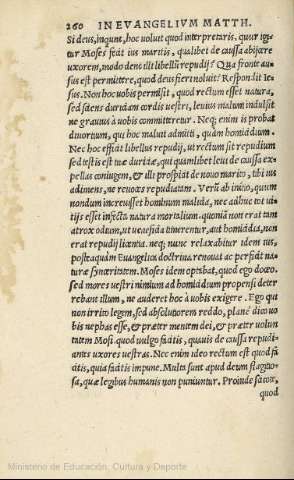 260 IN EVANGELIVM MATTH.
Si deus, inquiunt, hoc uoluit quod interpretaris, quur igi-
tur Moses fecit ius maritis, qualibet de caussa abijcere
uxorem, modo dent illi libellũ repudij? Qua fronte au-
sus est permittere, quod deus fieri noluit? Respondit Ie-
sus. Non hoc uobis permisit, quod rectum esset natura,
sed sciens duritiam cordis uestri, leuius malum indulsit
ne grauius à uobis committeretur. Neq; enim is probat
diuortium, qui hoc mauult admitti, quàm homicidium.
Nec hoc efficit libellus repudij, ut rectum sit repudium
sed testis est tuæ duritiæ, qui quamlibet leui de caussa ex-
pellas coniugem, & illi prospiciat de nouo marito, tibi ius
adimens, ne reuoces repudiatam. Verũ ab initio, quum
nondum increuisset hominum malitia, nec adhuc tot ui-
tijs esset infecta natura mortalium. quoniã non erat tam
atrox odium, ut ueneficia timerentur, aut homicidia, non
erat repudij licentia. neq; nunc relaxabitur idem ius,
posteaquàm Euangelica doctrina renouat ac perficit na-
turæ synceritatem. Moses idem optabat, quod ego doceo.
sed mores uestri nimium ad homicidium propensi deter
rebant illum, ne auderet hoc à uobis exigere. Ego qui
non irrito legem, sed absolutiorem reddo, planè dico uo
bis nephas esse, & præter mentem dei, & præter uolun
tatem Mosi quod uulgo facitis, quauis de caussa repudi-
antes uxores uestras. Nec enim ideo rectum est quod fa
citis, quia facitis impune. Multa sunt apud deum flagitio-
sa, quæ legibus humanis non puniuntur. Proinde
quod
Ministerio de Educación, Cultura y Deporte